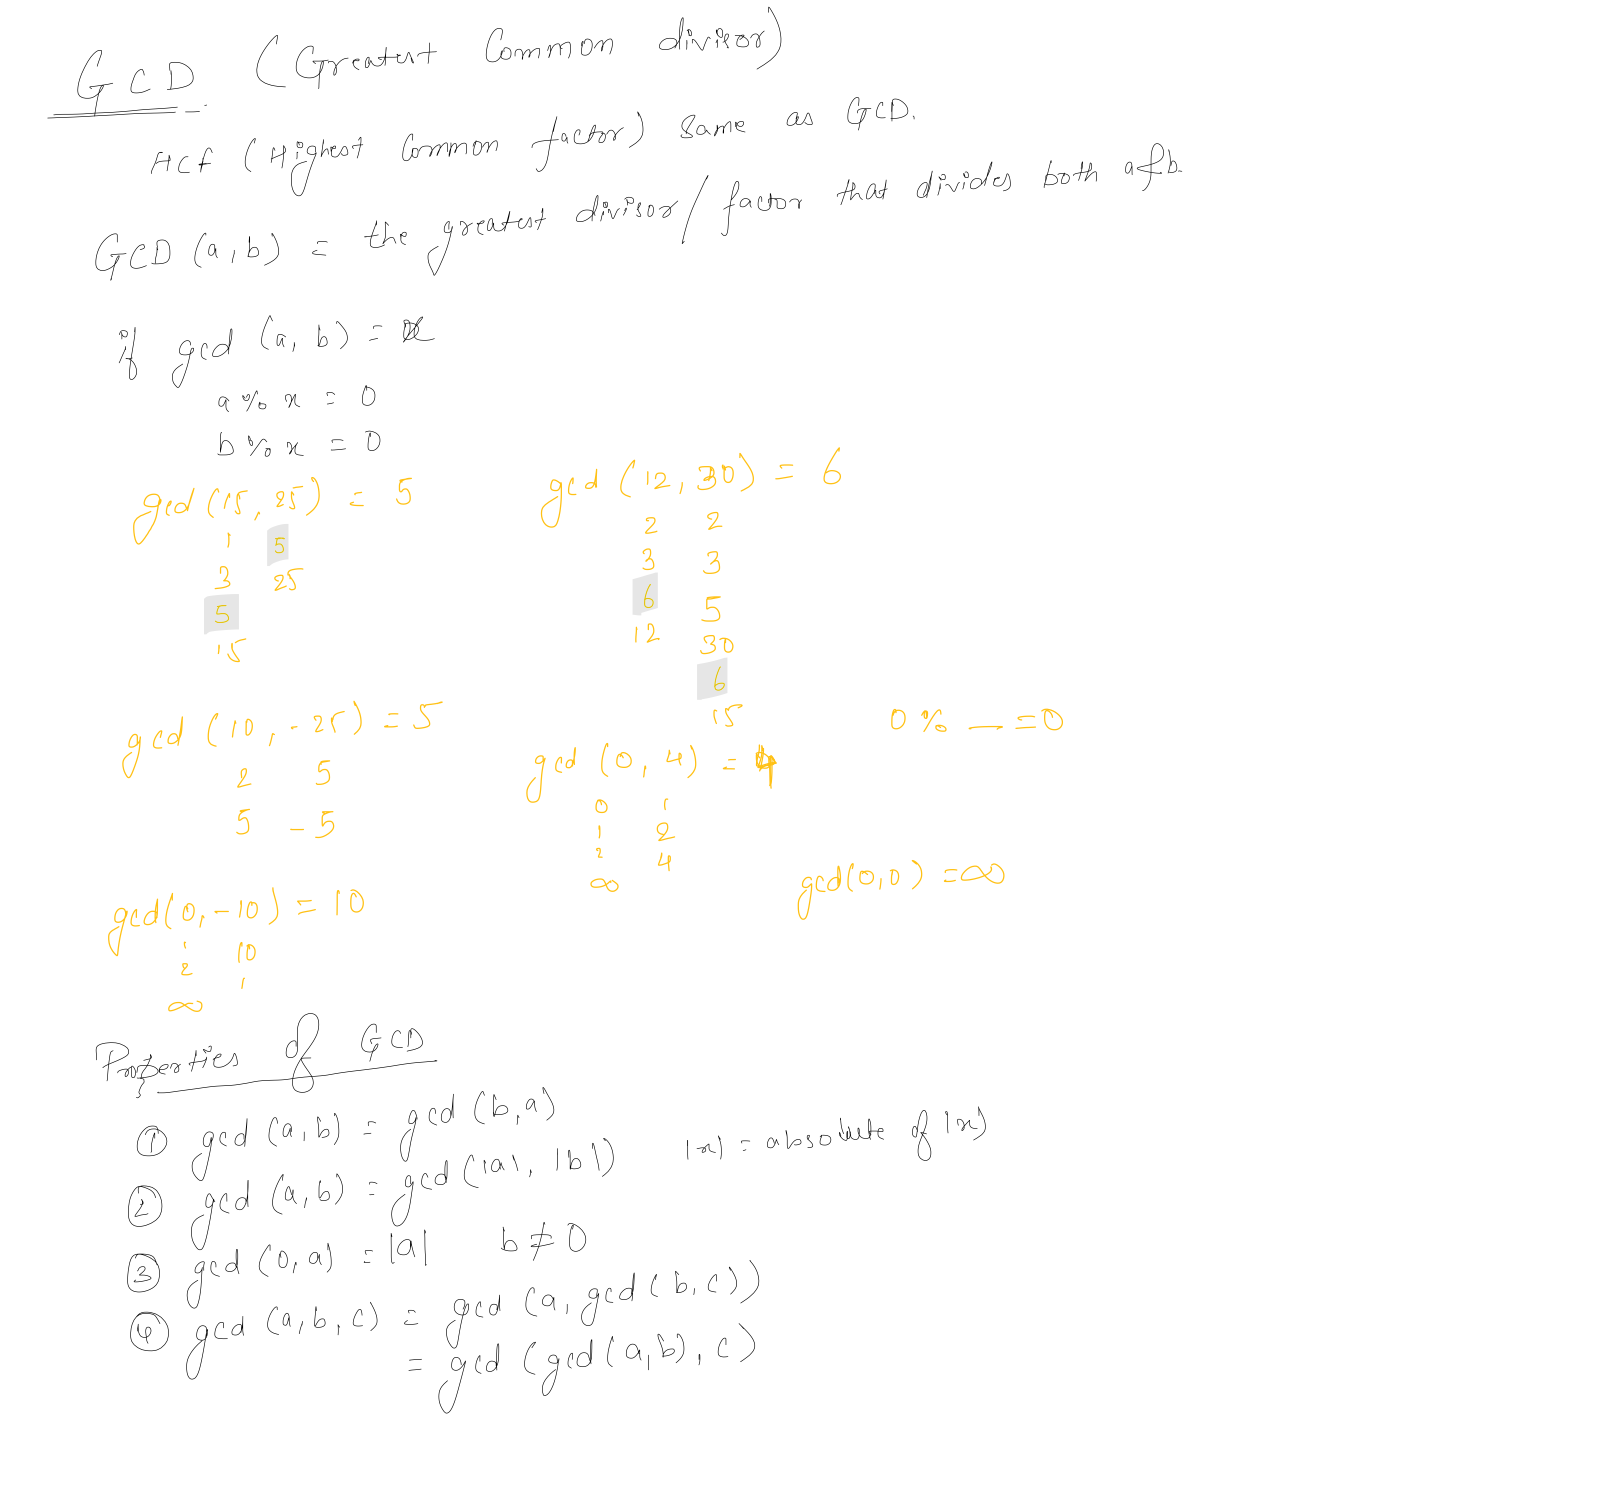 GCD (Greatest Common divisor)
HCf (Highest Common factor) Same as GCD.
GCD (a, b) = the greatest divisor/factor that divides both a & b.
if gcd (a, b) = x
a % x = 0
b % x = 0
gcd (15, 25) = 5
1 5
3 25
5
15
gcd (12, 30) = 6
2 2
3 3
6 5
12 30
6
15
gcd (10, -25) = 5
2 5
5 -5
gcd (0, 4) = 4
0 1
1 2
2 4
∞
0 % __ = 0
gcd(0, -10) = 10
1 10
2 1
∞
gcd(0,0) = ∞
Properties of GCD
① gcd (a, b) = gcd (b, a)
② gcd (a, b) = gcd (|a|, |b|) |x| = absolute of |x|
③ gcd (0, a) = |a| b ≠ 0
④ gcd (a, b, c) = gcd (a, gcd (b, c))
= gcd (gcd (a, b), c)